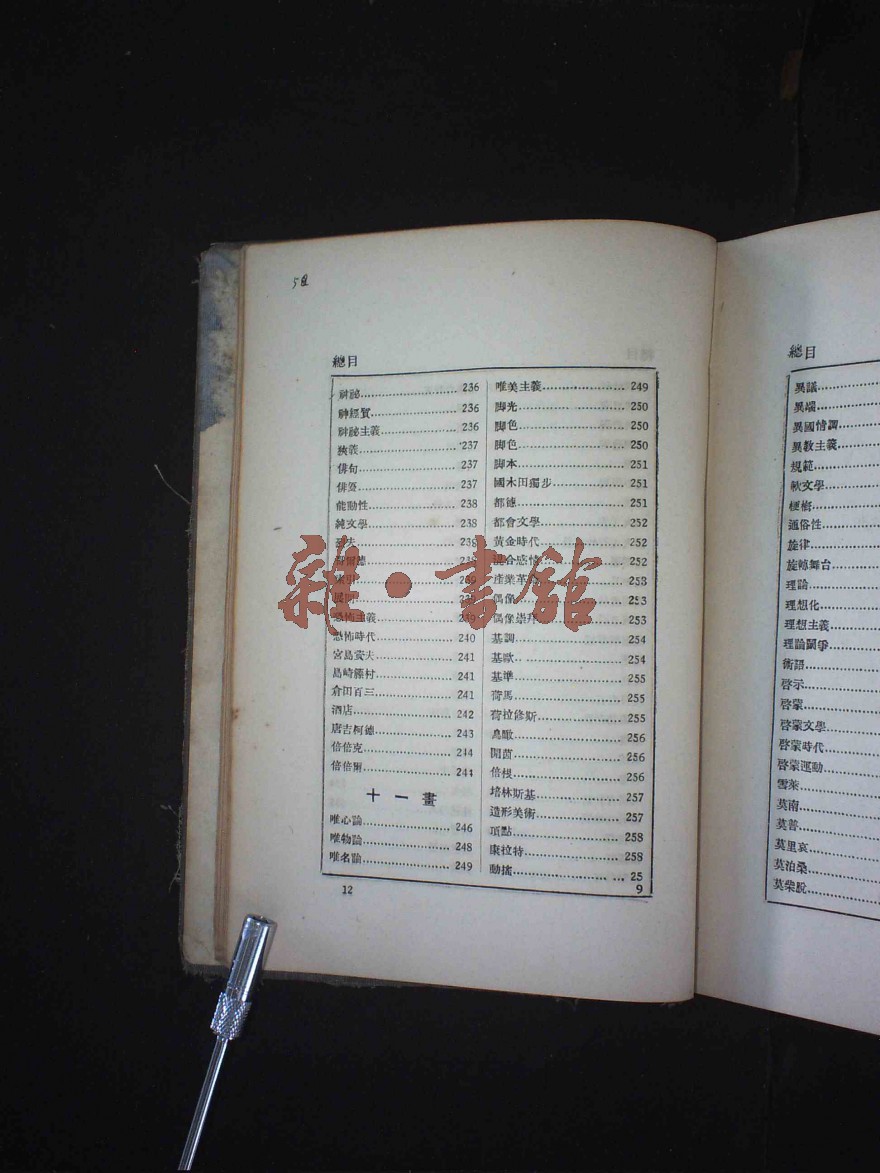 總目
神祕 236
神經質 236
神祕主義 236
狹義 237
俳句 237
俳優 237
能動性 238
純文學 238
239
索引 239
239
恐怖主義 239
恐怖時代 240
宮島資夫 241
島崎籐村 241
倉田百三 241
酒店 242
唐吉柯德 243
倍倍克 244
倍倍爾 244
十一畫
唯心論 246
唯物論 248
唯名論 249
唯美主義 249
脚光 250
脚色 250
脚色 250
脚本 251
國木田獨步 251
都德 251
都會文學 252
黃金時代 252
混合感情 252
產業革命 253
偶像 253
偶像崇拜 253
基調 254
基歐 254
基準 255
荷馬 255
荷拉修斯 255
鳥瞰 256
開茵 256
倍根 256
培林斯基 257
造形美術 257
頂點 258
康拉特 258
動搖 25
9
12
總目
異議
異端
異國情調
異教主義
規範
軟文學
梗槪
通俗性
旋律
旋轉舞台
理論
理想化
理想主義
理論鬪爭
術語
啓示
啓蒙
啓蒙文學
啓蒙時代
啓蒙運動
雪萊
莫南
莫普
莫里哀
莫泊桑
莫柴脫
雜·書館